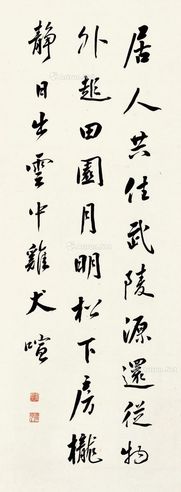 居人共住武陵源還從物
外起田園月明松下房櫳
靜日出雲中雞犬喧